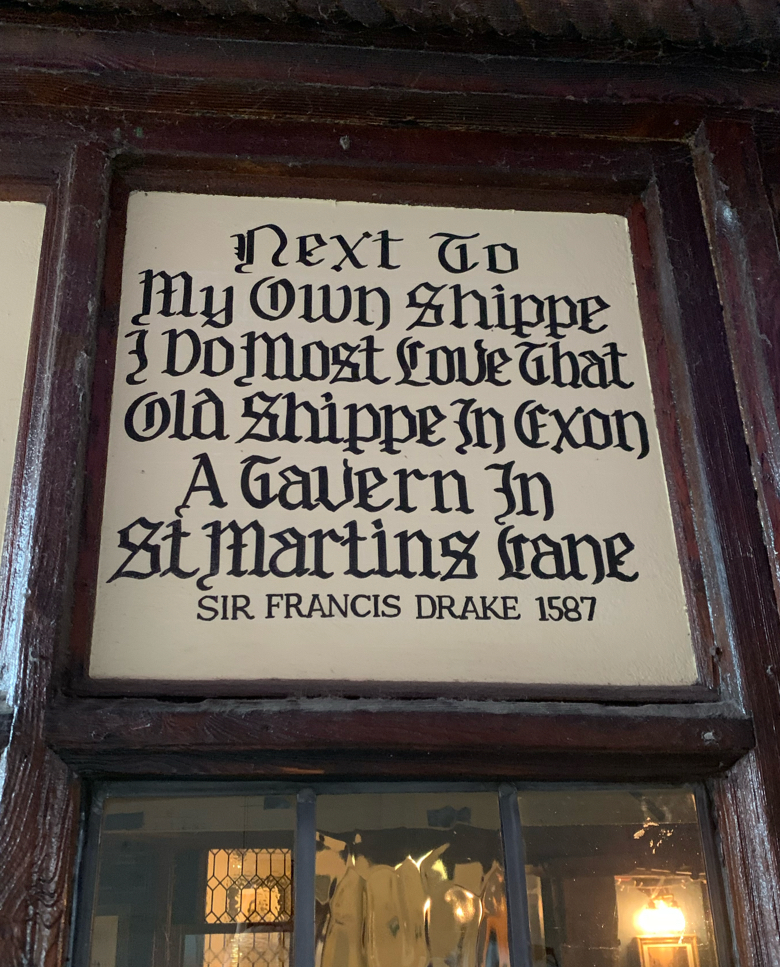 Next To
My Own Shippe
I Do Most Love That
Old Shippe In Exon
A Tavern In
St Martins Lane
SIR FRANCIS DRAKE 1587